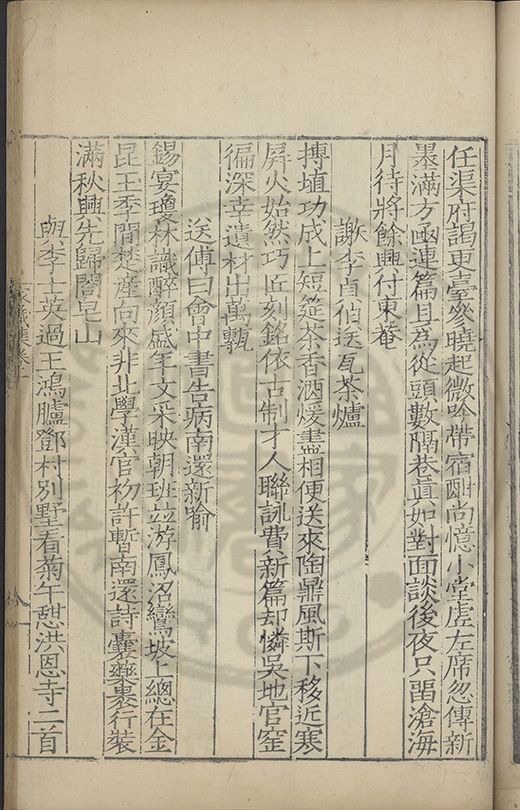 任渠府謁東臺參曉起微吟帶宿酣尚憶小堂虛左席忽傳新
墨滿方函連篇且為從頭數隔巷真如對面談後夜只留滄海
月待將餘興付東菴
謝李貞伯送瓦茶爐
摶埴功成上短筵茶香酒煖盡相便送來陶鼎風斯下移近寒
屏火始然巧匠刻銘依古制才人聯詠費新篇却憐吳地官窰
徧深幸遺材出萬甄
送傅曰會中書告病南還新喻
錫宴瓊林識醉顏盛年文采映朝班並游鳳沼鸞坡上總在金
昆玉季間楚產向來非北學漢官初許暫南還詩囊藥裹行裝
滿秋興先歸閤皂山
與李士英過王鴻臚鄧村別墅看菊午憇洪恩寺二首